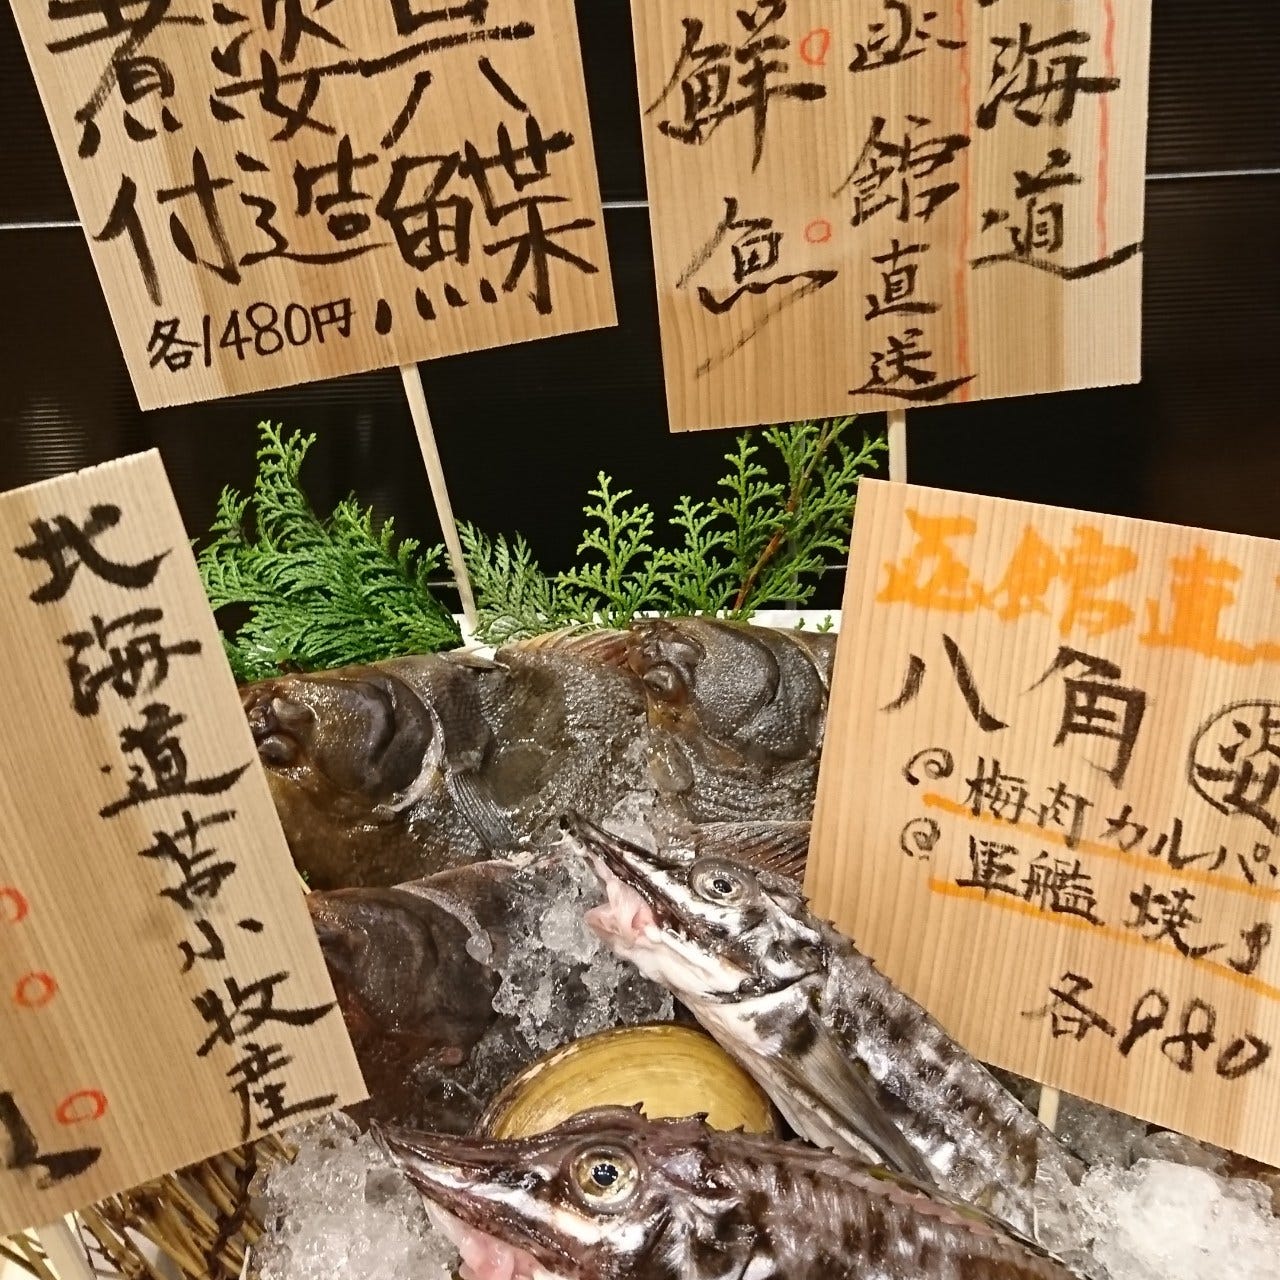 八鰈
姿造
煮付
各1480円
海道
函館直送
鮮魚
北海道苫小牧産
函館直
八角
梅肉カルパ
軍艦焼き
各980